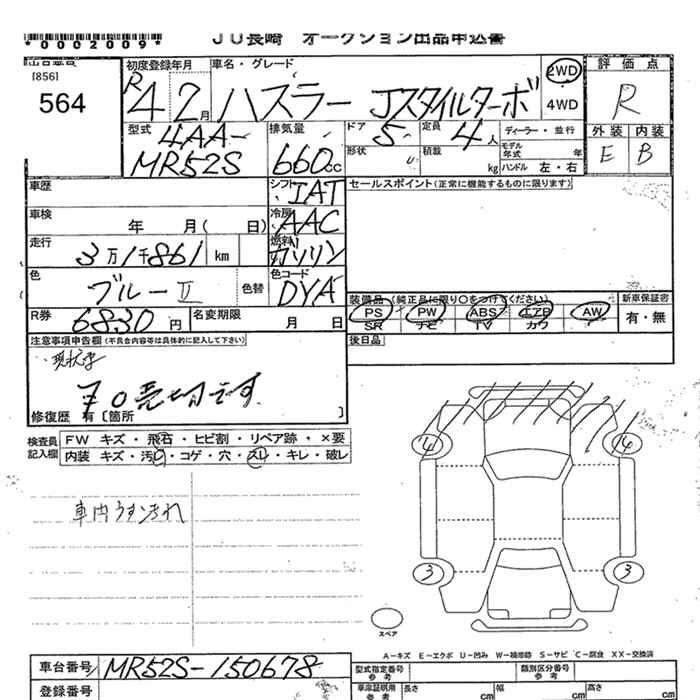 *0002009* JU長崎 オークション出品申込書
[856]
564
初度登録年月 車名・グレード 2WD 4WD 評価点
R4 2月 ハスラー JスタイルターボR
型式 排気量 ドア 定員 ディーラー・並行 外装 内装
4AA-
MR52S 660cc 5 4人 E B
形状 積載 kg モデル年式 年 ハンドル 左・右
車歴 シフト IAT セールスポイント(正常に機能するものに限ります)
車検 年 月( 日) 冷房 AAC
走行 3万1千861 km 燃料 ガソリン
色 ブルーII 色替 色コード DYA
装備品(純正品に限り○をつけてください) 新車保証書
PS PW ABS エアB AW 有・無
SR ナビ TV カワ
R券 6830円 名変期限 月 日
後日品
注意事項申告欄(不具合内容等は具体的に記入して下さい)
現状車
70売切です
修復歴 有〔箇所 〕
検査員記入欄 FW キズ・飛石・ヒビ割・リペア跡・×要
内装 キズ・汚レ・コゲ・穴・スレ・キレ・破レ
車内うすよごれ
4 4
3 3
スペア
A-キズ E-エクボ U-凹み W-補修跡 S-サビ C-腐食 XX-交換済
車台番号 MR52S-150678
型式指定番号 参考 類別区分番号 参考
登録番号
車庫証明用 参考 長さ cm 幅 cm 高さ cm